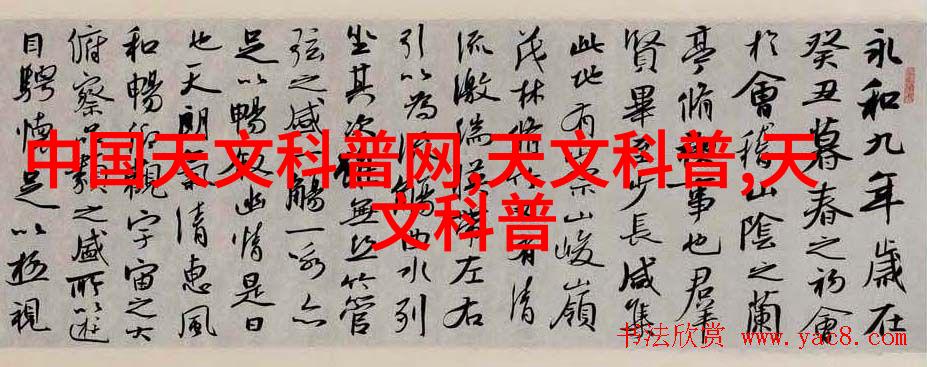 永和九年歲在
癸丑暮春之初會
於會稽山陰之蘭
亭脩事也群
賢畢至少長咸集
此地有崇山峻嶺
茂林脩又有清
流激湍暎帶左右
引以為流觴曲水列
坐其次雖無絲竹管
弦之盛觴一詠亦
足以暢敘幽情是日
也天朗氣清惠風
和暢仰觀宇宙之大
俯察品類之盛所以遊
目騁懷足以極視
中国天文科普网,天文科普,天
文科普
书法欣赏 www.yac8.com